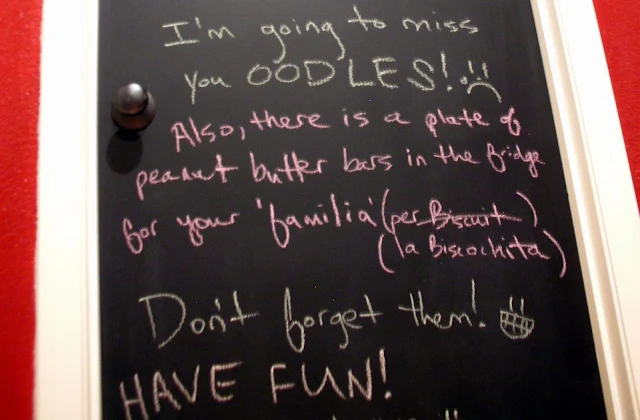 I'm going to miss
you OODLES!
Also, there is a plate of
peanut butter bars in the fridge
for your 'familia' (per Biscuit)
(la Biscochita)
Don't forget them!
HAVE FUN!